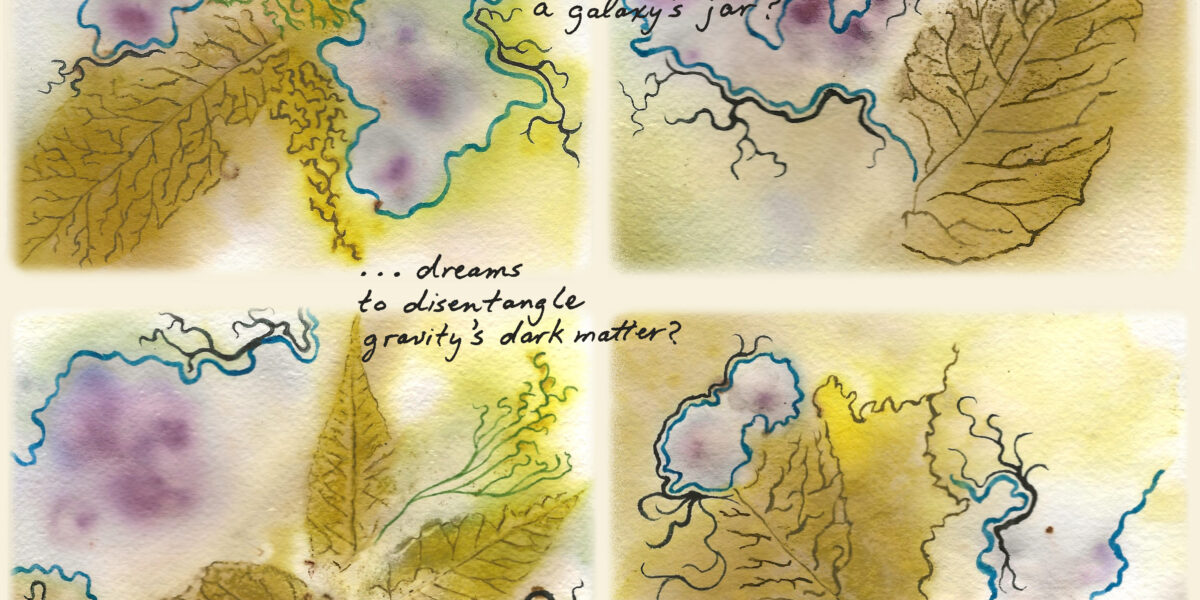 a galaxy's jar?
... dreams
to disentangle
gravity's dark matter?